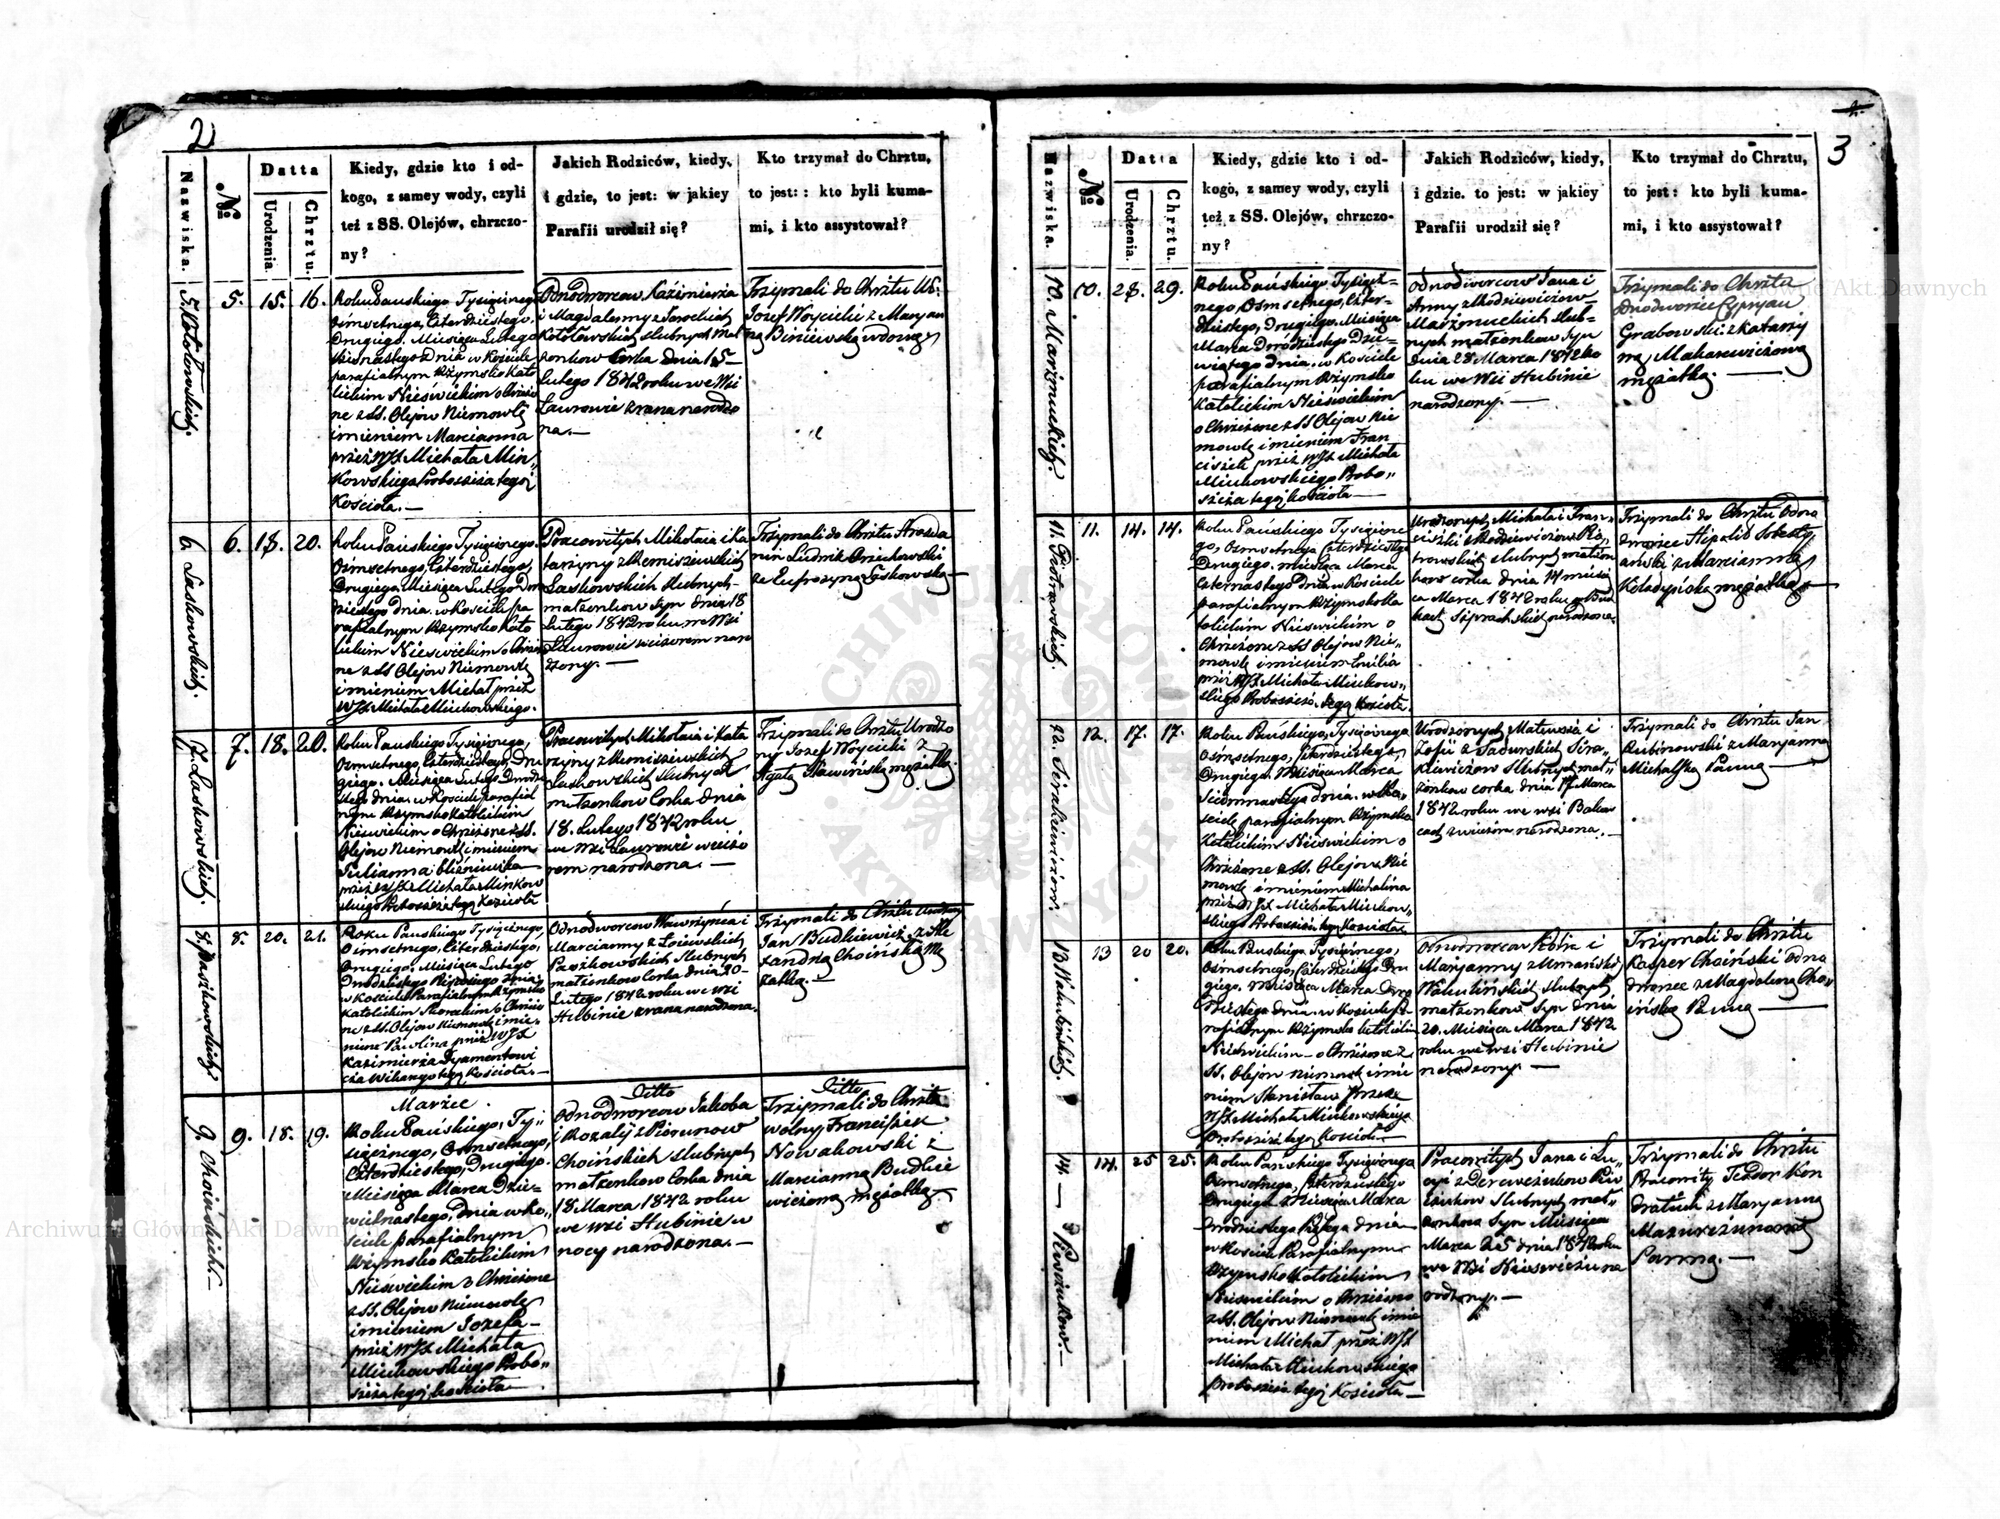 2
Nazwiska.
№
Datta
Urodzenia.
Chrztu.
Kiedy, gdzie kto i od-
kogo, z samey wody, czyli
też z SS. Olejów, chrzczo-
ny?
Jakich Rodziców, kiedy,
i gdzie, to jest: w jakiey
Parafii urodził się?
Kto trzymał do Chrztu,
to jest: : kto byli kuma-
mi, i kto assystował?
5.
15.
16.
Roku Pańskiego Tysiącznego
Osmsetnego, Czterdziestego
Drugiego. Miesiąca Lutego
Dnia w Kosciele
parafialnym Rzymsko Kato
lickim Nieswickim o Chrzczo
ne z SS. Olejow Niemowlę
imieniem Marcianna
przez WJX Michała Min„
kowskiego Proboszcza tegoż
Kościoła.—
Odnodworcow Kazimierza
i Magdaleny z
slubnych mał
zonkow Corka dnia 15
Lutego 1842 roku we Wsi
Laurowie z rana narodzo
na.—
Trzymali do Chrztu
Jozef Woycicki z Maryan
ną wdową
6. Laskowskich
6.
18.
20.
Roku Pańskiego Tysiącznego
Osmsetnego, Czterdziestego,
Drugiego Miesiąca Lutego Dwo
dziestego Dnia. w Kosciele pa
rafialnym Rzymsko Kato
lickim Nieswickim o Chrzczo
ne z SS Olejow Niemowlę
imieniem Michał przez
WJX Michała Minkowskiego.
Pracowitych Mikołaia i Ka
tarzyny z
Laskowskich slubnych
małzonkow Syn dnia 18
Lutego 1842 roku we Wsi
Laurowie wieczorem naro
dzony.—
Trzymali do Chrztu
Ludwik
z Eufrozyną Laskowską—
7. Laskowskich.
7.
18.
20.
Roku Pańskiego Tysiącznego,
Osmsetnego, Czterdziestego, Dru
giego. Miesiąca Lutego Dwodzie
stego dnia. w Kosciele parafial
nym Rzymsko Katolickim
Nieswickim o Chrzczone z SS.
Olejow Niemowlę imieniem
Julianna bliźniaczka
przez WJX Michała Minkow
skiego Proboszcza tegoż Kościoła
Pracowitych Mikołaia i Kata
rzyny z
Laskowskich slubnych
małzonkow Corka dnia
18. Lutego 1842 roku
we Wsi Laurowie wieczo
rem narodzona.—
Trzymali do Chrztu Urodzo
ny Jozef Woycicki z
Agatą mężatką.
8.
8.
20.
21.
Roku Pańskiego Tysiącznego,
Osmsetnego, Czterdziestego,
Drugiego. Miesiąca Lutego
Dwodziestego Pierwszego dnia
w Kosciele Parafialnym Rzymsko
Katolickim o Chrzczo
ne z SS. Olejow Niemowlę imie„
niem Paulina przez WJX
Kazimierza
Wikarego tegoż Kościoła.—
Odnodworcow Wawrzynca i
Marcianny z
slubnych
małzonkow Corka dnia 20
Lutego 1842 roku we wsi
Hubinie z rana narodzona.
Trzymali do Chrztu
Jan Budkiewicz z
Choinską Mę
zatką.—
Marzec.
Ditto
Ditto
9. Choinskich.—
9.
18.
19.
Roku Pańskiego, Ty„
siącznego, Osmsetnego,
Czterdziestego, Drugiego.
Miesiąca Marca Dzie„
wietnastego, dnia w Ko„
sciele parafialnym
Rzymsko Katolickim
Nieswickim o Chrzczone
z SS. Olejow Niemowlę
imieniem Jozefa—
przez WJX Michała
Minkowskiego Probo„
szcza tegoż kościoła—
Odnodworcow Jakoba
i Rozalij z Piorunow
Choinskich slubnych
małzonkow Corka dnia
18 Marca 1842 roku
we wsi Hubinie w
nocy narodzona.—
Trzymali do Chrztu
wolny Franciszek
Nowakowski z
Marcianną Budkie
wiczową mężatką.
4.
3
Nazwiska.
№
Datta
Urodzenia.
Chrztu.
Kiedy, gdzie kto i od-
kogo, z samey wody, czyli
też z SS. Olejów, chrzczo-
ny?
Jakich Rodziców, kiedy,
i gdzie. to jest: w jakiey
Parafii urodził się?
Kto trzymał do Chrztu,
to jest: kto byli kuma-
mi, i kto assystował?
10.
10.
28.
29.
Roku Pańskiego, Tysiącz„
nego, Osmsetnego, Czter„
dziestego, Drugiego. Miesiąca
Marca Dwodziestego Dzie„
wiątego dnia. w Kosciele
parafialnym Rzymsko
Katolickim Nieswickim
o Chrzczone z SS Olejow Nie
mowlę imieniem Fran
ciszek przez WJX Michała
Minkowskiego Probo„
szcza tegoż kościoła—
Odnodworcow Jana i
Anny z
slub„
nych małzonkow Syn
dnia 28 Marca 1842 ro
ku we Wsi Hubinie
narodzony.—
Trzymali do Chrztu
Odnodworiec Cypryan
Grabowski z Katarzy
ną Makarewiczową
mężatką.—
11. Piotrowskich.
11.
14.
14.
Roku Pańskiego Tysiączne
go, Osmsetnego Czterdziestego
Drugiego. miesiąca Marca
Czternastego Dnia w Kosciele
parafialnym Rzymsko Ka
tolickim Nieswickim o
Chrzczone z SS Olejow Nie„
mowlę imieniem Emilia
przez WJX Michała Minkow„
skiego Proboszcza tegoż Kościoła.
Urodzonych Michała i Fran„
ciszki Pio„
trowskich slubnych małzon
kow corka dnia 14 miesią
ca Marca 1842 roku
narodzona.
Trzymali do Chrztu Odno
dworiec
z Marcianną
mężatką—
12.
12.
17.
17.
Roku Pańskiego, Tysiącznego
Osmsetnego, Czterdziestego,
Drugiego. Miesiąca Marca
Siedmnastego dnia. w Ko„
sciele parafialnym Rzymsko
Katolickim Nieswickim o
Chrzczone z SS. Olejow Nie
mowlę imieniem Michalina
przez WJX Michała Minkow„
skiego Proboszcza tegoż Kościoła.
Urodzonych Mateusza i
Zofii z Sadurskich
slubnych mał„
zonkow corka dnia 17 Marca
1842 roku we wsi
wieczorem narodzona.—
Trzymali do Chrztu Jan
Rubinowski z Maryanną
Michalską Panną—
13
13
20
20.
Roku Pańskiego Tysiącznego,
Osmsetnego, Czterdziestego Dru
giego. Miesiąca Marca Dwo
dziestego dnia. w Kosciele Pa
rafialnym Rzymsko Katolickim
Nieswickim—o Chrzczone z
SS. Olejow Niemowlę imie
niem Stanisław przez
WJX Michała Minkowskiego
Proboszcza tegoż Kościoła—
Odnodworcow i
Maryanny z
slubnych
małzonkow Syn dnia
20. Miesiąca Marca 1842
roku we wsi Hubinie
narodzony.—
Trzymali do Chrztu
Kasper Choinski Odno
dworzec z Magdaleną Cho„
inską Panną—
14.—
14.
25
25.
Roku Pańskiego Tysiącznego
Osmsetnego, Czterdziestego
Drugiego Miesiąca Marca
Dwodziestego Piątego dnia
w Kosciele Parafialnym
Rzymsko Katolickim
Nieswickim o Chrzczone
z SS. Olejow Niemowlę imie
niem Michał przez WJX
Michała Minkowskiego
Proboszcza tegoż Kościoła—
Pracowitych Jana i Łu„
cyi z
slubnych mał„
zonkow Syn Miesiąca
Marca 25 dnia 1842 roku
we Wsi Nieswiczu na
rodzony.—
Trzymali do Chrztu
Pracowity Teodor Kon
dratiuk z Maryanną
Panną.—
Archiwum Główne Akt Dawnych
Archiwum Główne Akt Dawnych
ARCHIWUM GŁÓWNE AKT DAWNYCH